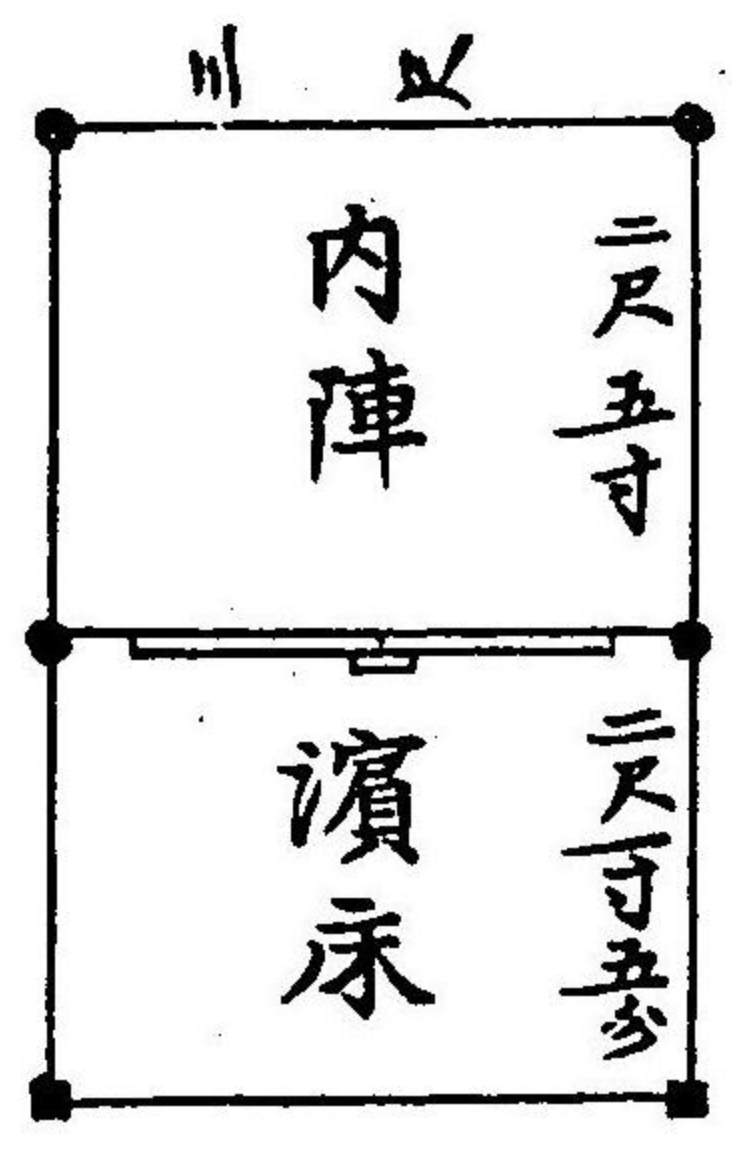 三尺
内陣
二尺五寸
濱床
二尺一寸五分